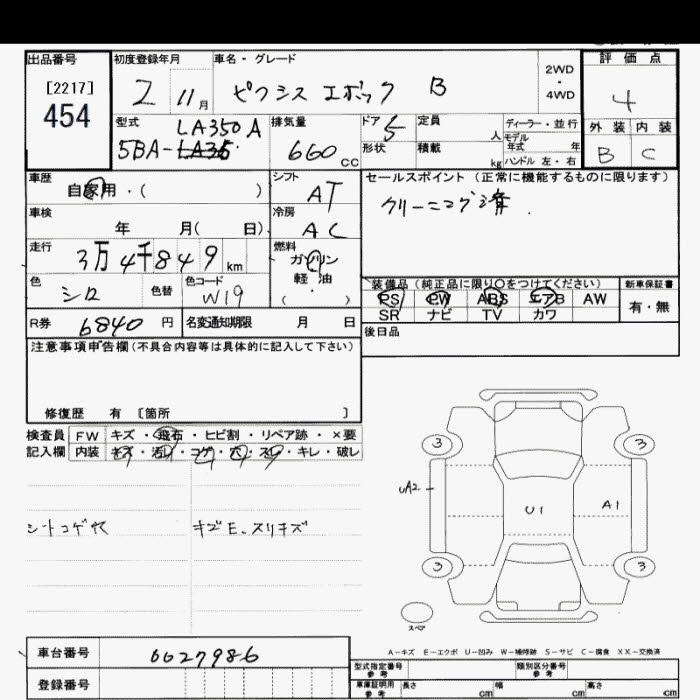 出品番号 初度登録年月 車名・グレード 2WD・4WD 評価点
[2217]
454
2 11月 ピクシス エポック B 4
型式 排気量 ドア 定員 ディーラー・並行 外装 内装
LA350A 5 人 モデル年式 年
5BA-LA35 660cc 形状 積載 kg ハンドル 左・右 B C
車歴 シフト セールスポイント (正常に機能するものに限ります)
自家用・( ) AT クリーニング済.
車検 冷房
年 月( 日) AC
走行 燃料
3万4千849km ガソリン
軽・油
( ・ )
色 色替 色コード 装備品 (純正品に限り○をつけてください) 新車保証書
シロ W19 PS PW ABS エアB AW 有・無
SR ナビ TV カワ
R券 6840円 名変通知期限 月 日 後日品
注意事項申告欄(不具合内容等は具体的に記入して下さい)
修復歴 有 [箇所 ]
検査員 FW キズ・飛石・ヒビ割・リペア跡・×要
記入欄 内装 キズ・汚レ・コゲ・穴・スレ・キレ・破レ
3 3
UA2 U1 A1
シートコゲ穴 キズE.スリキズ
3 3
スペア
A−キズ E−エクボ U−凹み W−補修跡 S−サビ C−腐食 XX−交換済
車台番号 0027986 型式指定番号 参考 類別区分番号 参考
登録番号 車庫証明用 参考 長さ cm 幅 cm 高さ cm